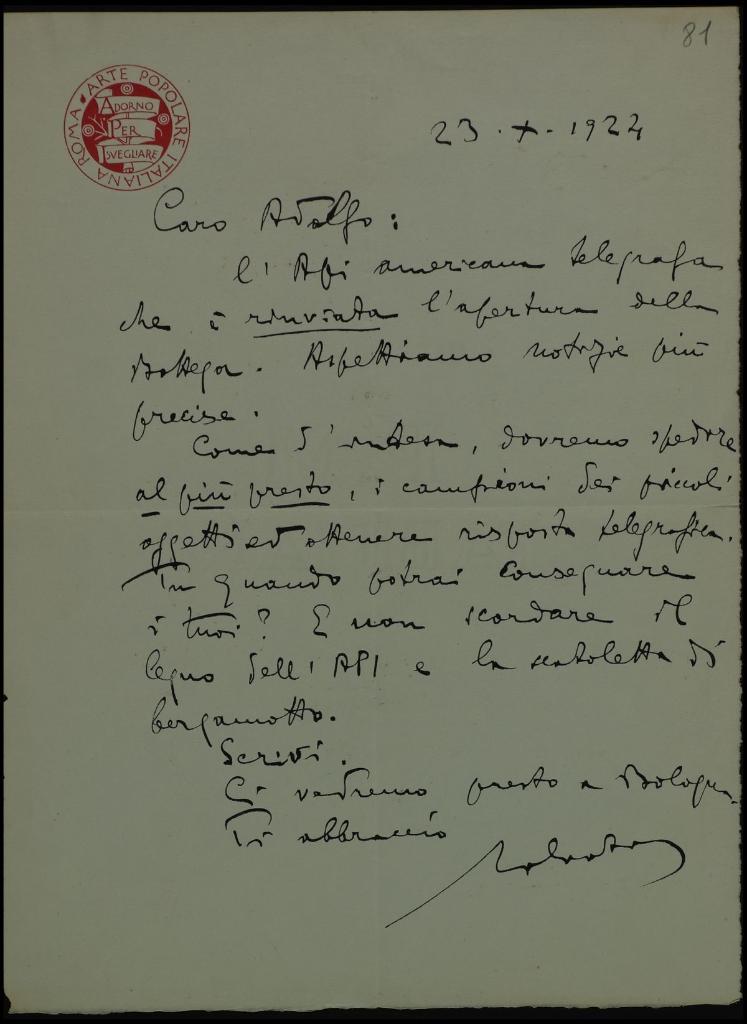 81
ROMA · ARTE POPOLARE ITALIANA
ADORNO
PER
ISVEGLIARE
23 · X · 1922
Caro Adolfo:
l'Api americana telegrafa
che è rinviata l'apertura della
Bottega. Aspettiamo notizie più
precise.
Come d'intesa, dovremo spedire
al più presto, i campioni dei piccoli
oggetti ed ottenere risposta telegrafica.
Tu quando potrai consegnare
i tuoi? E non scordare il
legno dell'API e la scatoletta di
bergamotto.
Scrivi.
Ci vedremo presto a Bologna.
Ti abbraccio